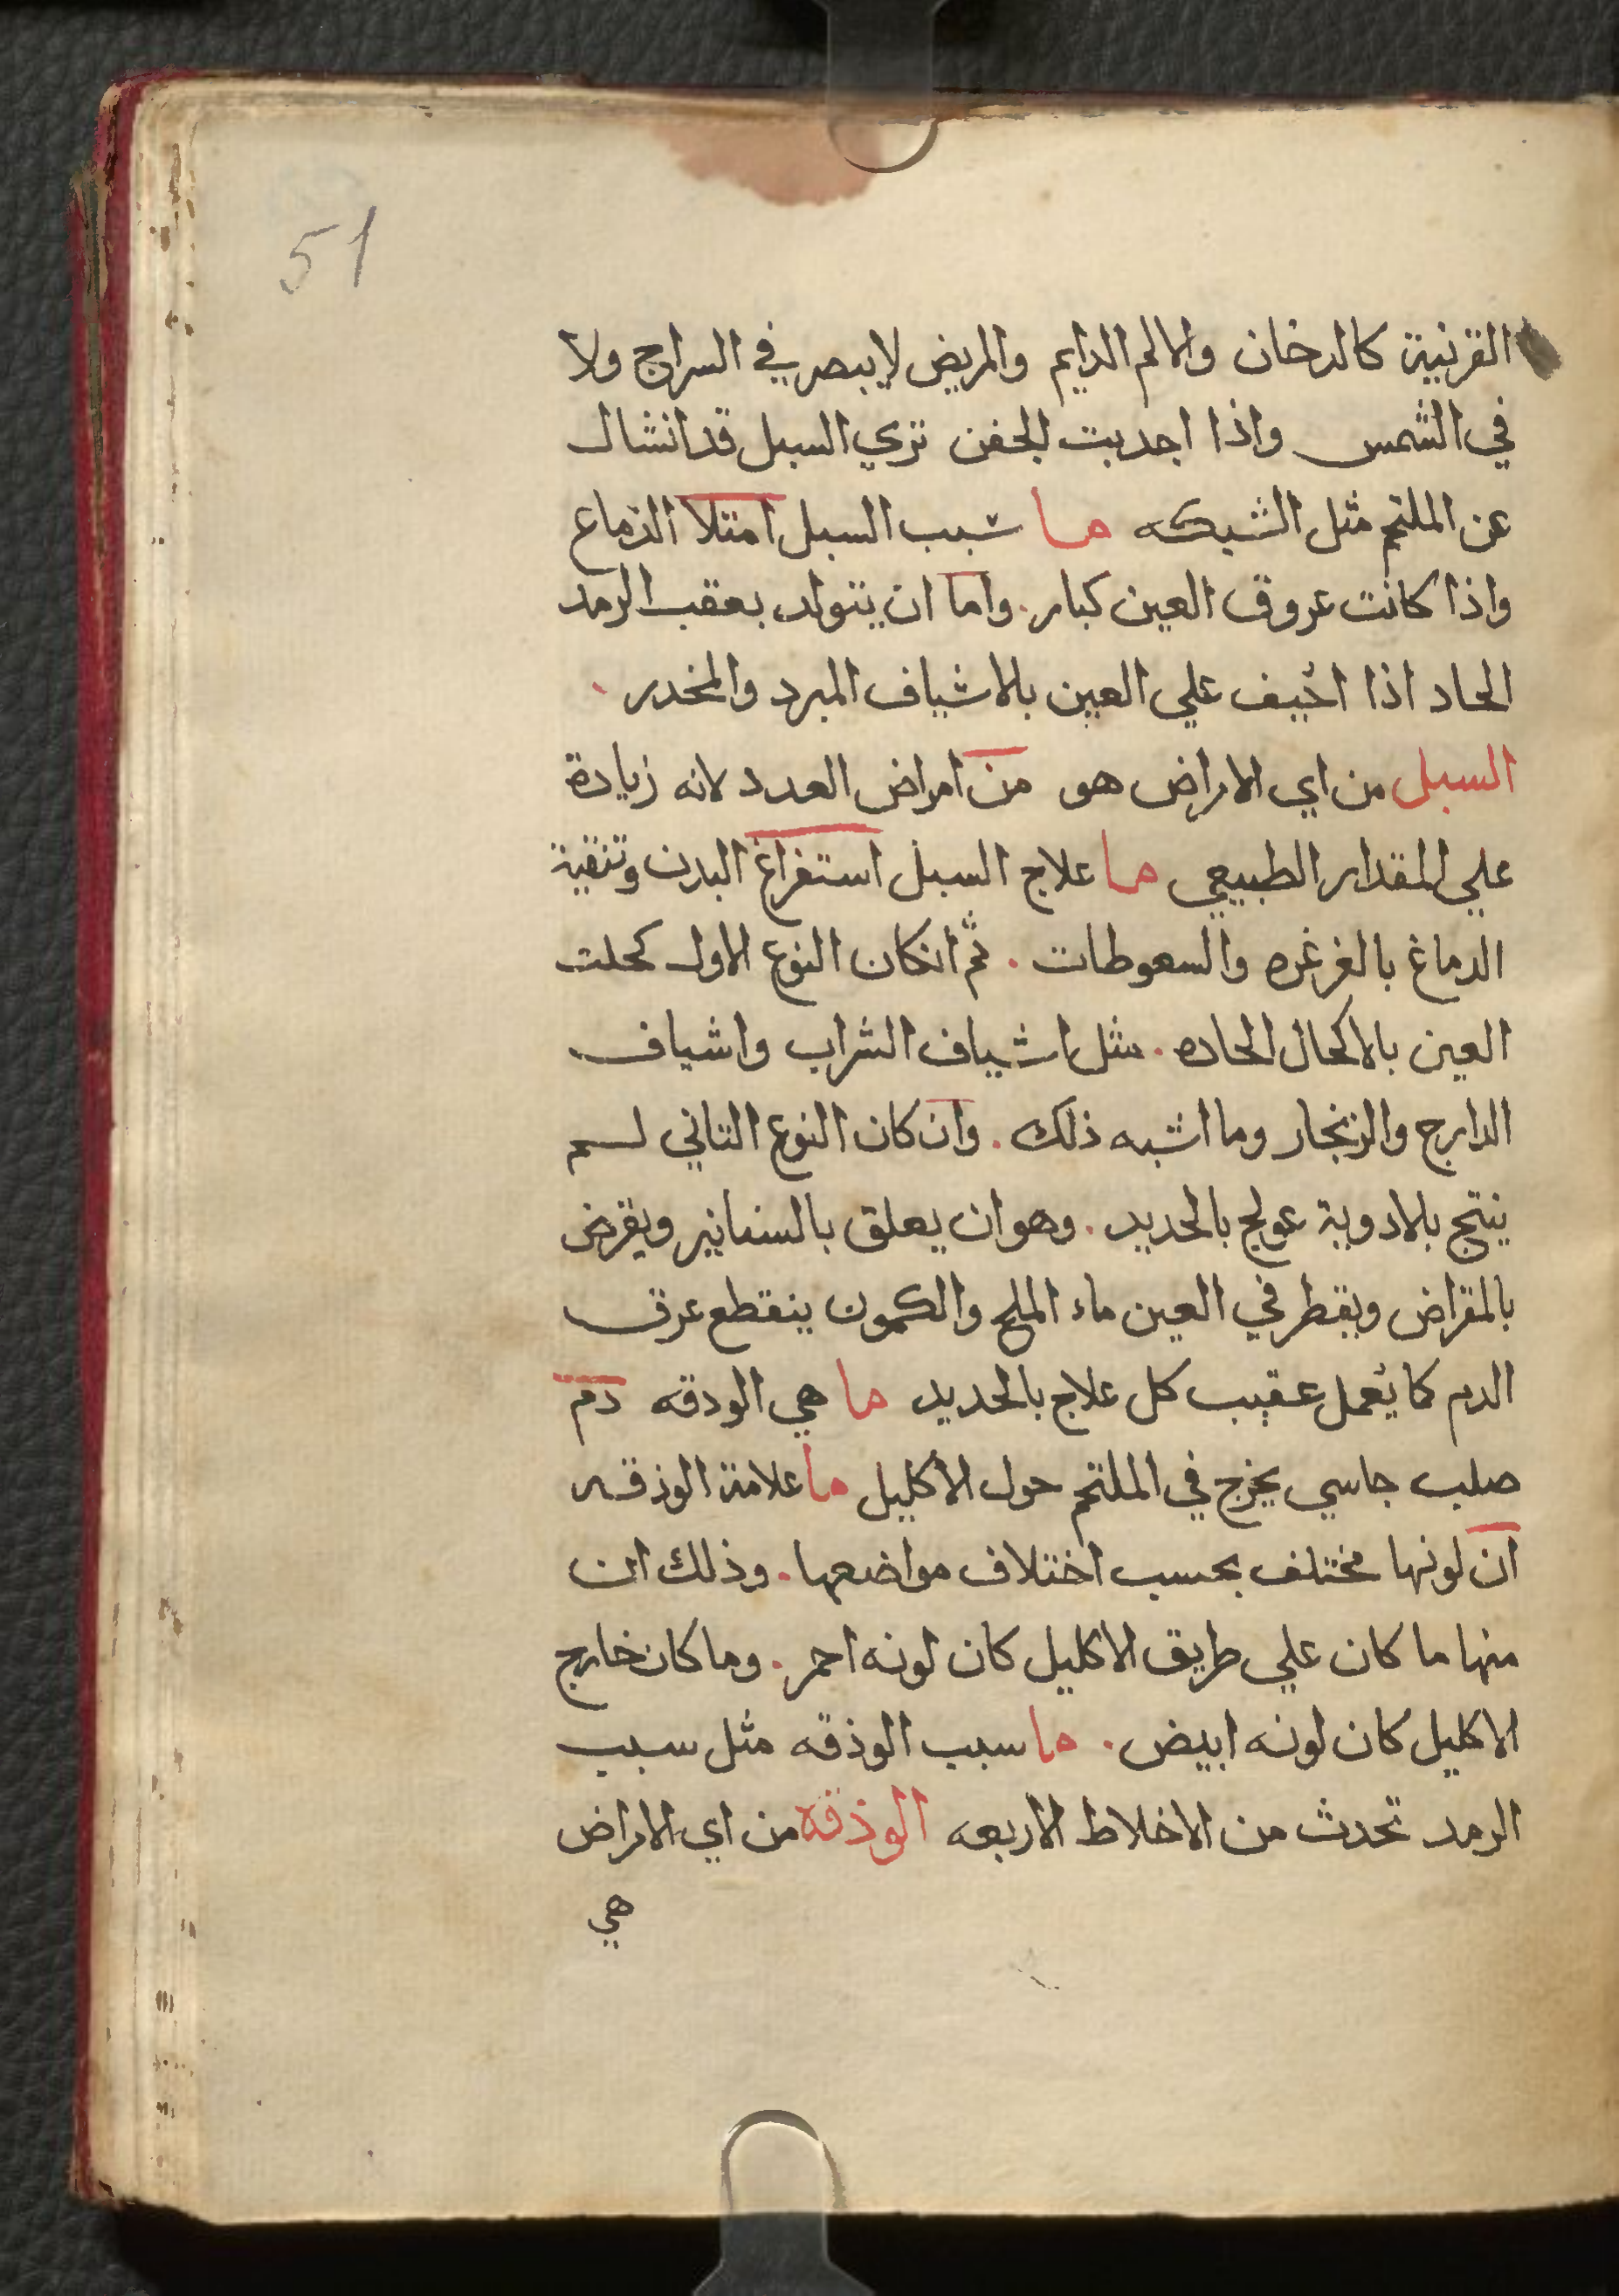 51
القرنية كالدخان والالم الدايم والمريض لايبصر في السراج ولا
في الشمس واذا اجدبت الجفن تري السبل قد انشال
عن الملتحم مثل الشبكه ما سبب السبل امتلا الدماغ
واذا كانت عروق العين كبار. واما ان يتولد بعقب الرمد
الحاد اذا اخيف علي العين بالاشياف المبرد والمخدر.
السبل من اي الامراض هو من امراض العدد لانه زيادة
علي المقدار الطبيعي ما علاج السبل استفراغ البدن وتنقية
الدماغ بالغرغره والسعوطات. ثم انكان النوع الاول كحلت
العين بالاكحال الحاده. مثل اشياف الشراب واشياف
الدارج والزنجار وما اشبه ذلك. وان كان النوع التاني لسم
ينتج بلادوية عولج بالحديد. وهو ان يعلق بالسنانير ويقرض
بالمقراض ويقطر في العين ماء الملح والكمون ينقطع عرق
الدم كما يُعمل عقيب كل علاج بالحديد ما هي الودقه دم
صلب جاسي يخرج في الملتحم حول الاكليل ما علامة الوذقه
ان لونها مختلف بحسب اختلاف مواضعها. وذلك ان
منها ما كان علي طريق الاكليل كان لونه احمر. وما كان خارج
الاكليل كان لونه ابيض. ما سبب الوذقه مثل سبب
الرمد تحدث من الاخلاط الاربعه الوذقه من اي الامراض
هي